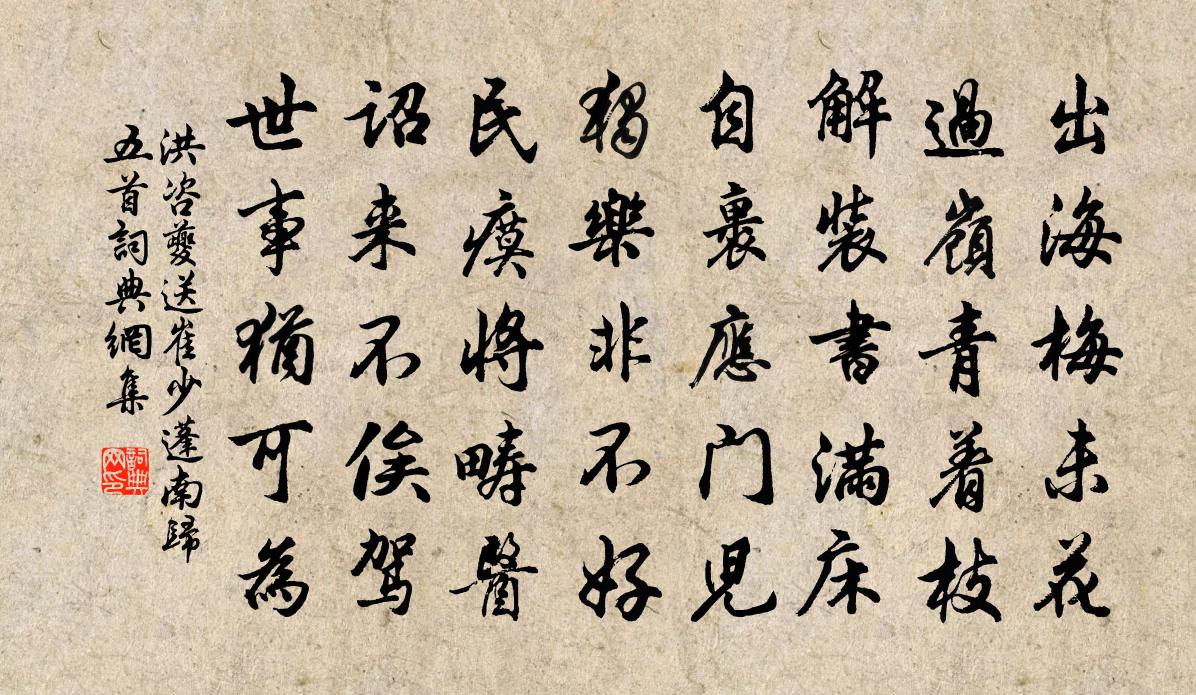 出海梅未花
過嶺青着枝
解裝書滿床
自裹應门児
獨樂非不好
民瘼将疇醫
詔来不俟驾
世事猶可為
洪咨夔送崔少蓬南歸
五首詞典網集
詞典网印